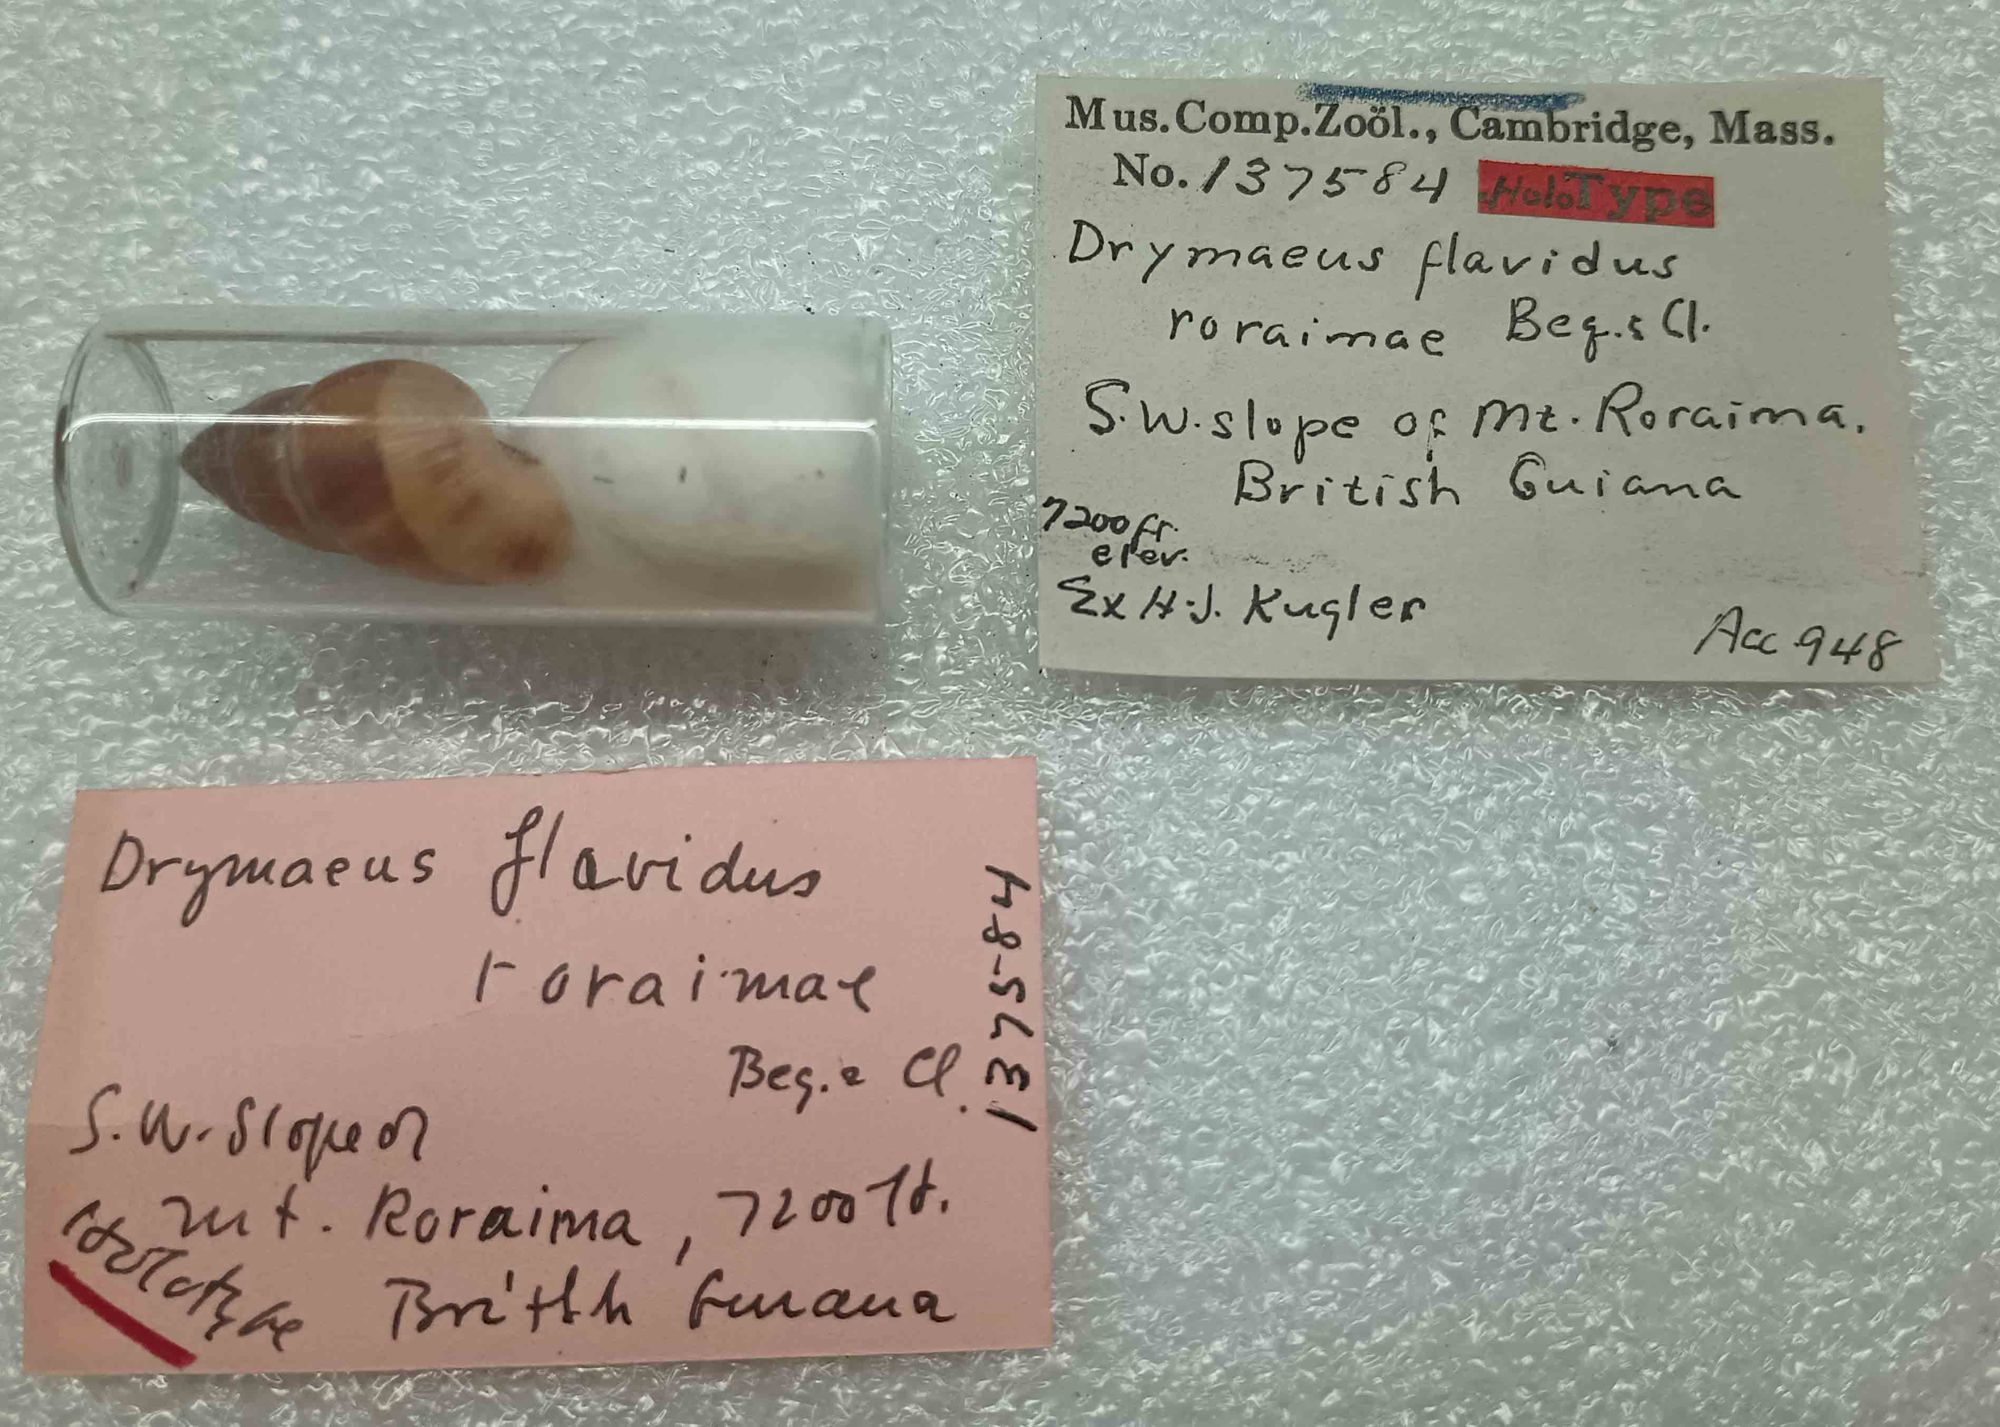 Mus.Comp.Zoöl., Cambridge, Mass.
No. 137584 HoloType
Drymaeus flavidus
roraimae Beq. & Cl.
S.W. slope of Mt. Roraima.
British Guiana
7200 ft.
elev.
Ex H.J. Kugler
Acc 948
Drymaeus flavidus
roraimae
Beq. & Cl.
S.W. Slope of
Mt. Roraima, 7200 ft.
British Guiana
Holotype
137584